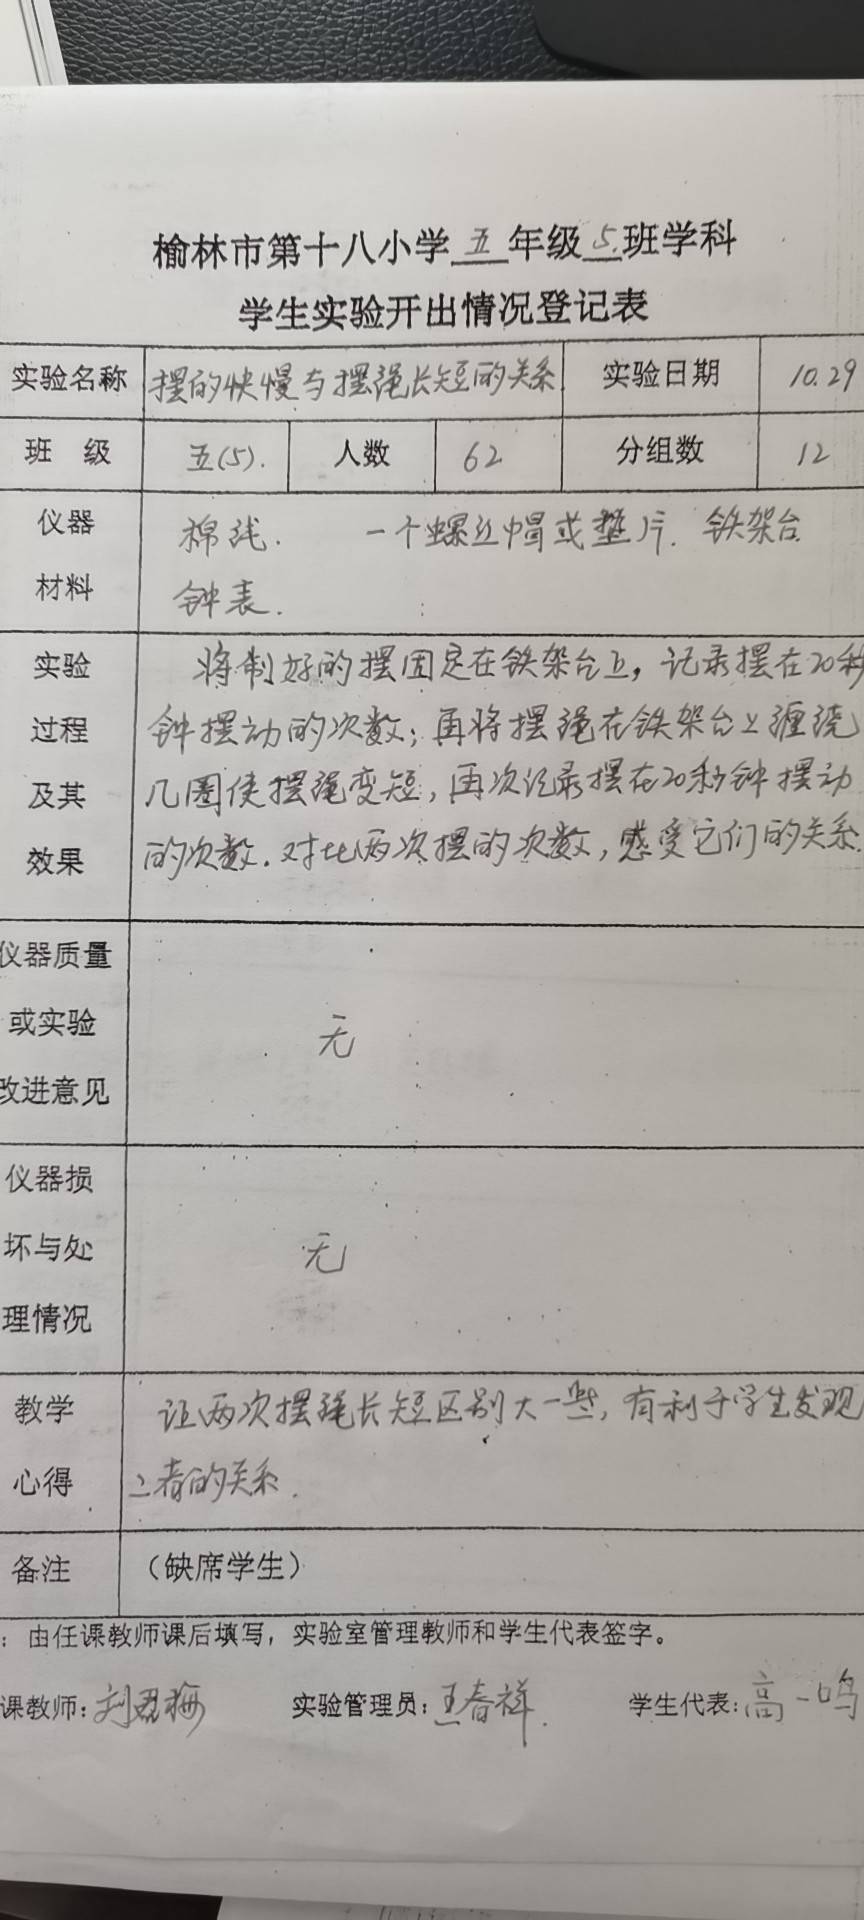 榆林市第十八小学 五 年级 5. 班学科
学生实验开出情况登记表
实验名称 摆的快慢与摆绳长短的关系 实验日期 10.29
班 级 五(5). 人数 62 分组数 12
仪器 棉线. 一个螺丝帽或垫片. 铁架台
材料 钟表.
实验 将制好的摆固定在铁架台上，记录摆在20秒
过程 钟摆动的次数；再将摆绳在铁架台上缠绕
及其 几圈使摆绳变短，再次记录摆在20秒钟摆动
效果 的次数. 对比两次摆的次数，感受它们的关系.
仪器质量
或实验 无
改进意见
仪器损
坏与处 无
理情况
教学 让两次摆绳长短区别大一些，有利于学生发现
心得 二者的关系.
备注 （缺席学生）
：由任课教师课后填写，实验室管理教师和学生代表签字。
课教师: 刘君梅 实验管理员: 王春祥. 学生代表: 高一鸣